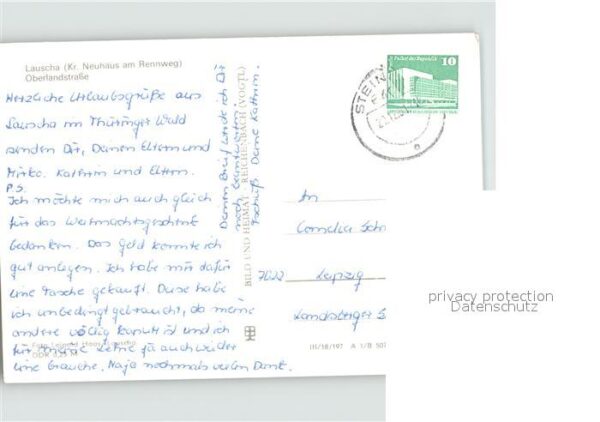 Lauscha (Kr. Neuhaus am Rennweg)
Oberlandstraße
Herzliche Urlaubsgrüße aus
Lauscha im Thüringer Wald
senden Dir, Deinen Eltern und
Mirko. Kathrin und Eltern.
P.S.
Ich möchte mich auch gleich
für das Weihnachtsgeschenk
bedanken. Das Geld konnte ich
gut anlegen. Ich habe mir dafür
eine Tasche gekauft. Diese habe
ich unbedingt gebraucht, da meine
andere völlig kaputt ist und ich
für meine Lehre ja auch wieder
eine brauche. Naja nochmals vielen Dank.
Deinen Brief werde ich Dir
noch beantworten.
Tschüß Deine Kathrin.
BILD UND HEIMAT · REICHENBACH (VOGTL)
Palast der Republik
10
DDR
STEIN
An
Cornelia
7022 Leipzig
Landsberger S
Foto
DDR 0,25 M
III/18/197 A 1/B 507
privacy protection
Datenschutz